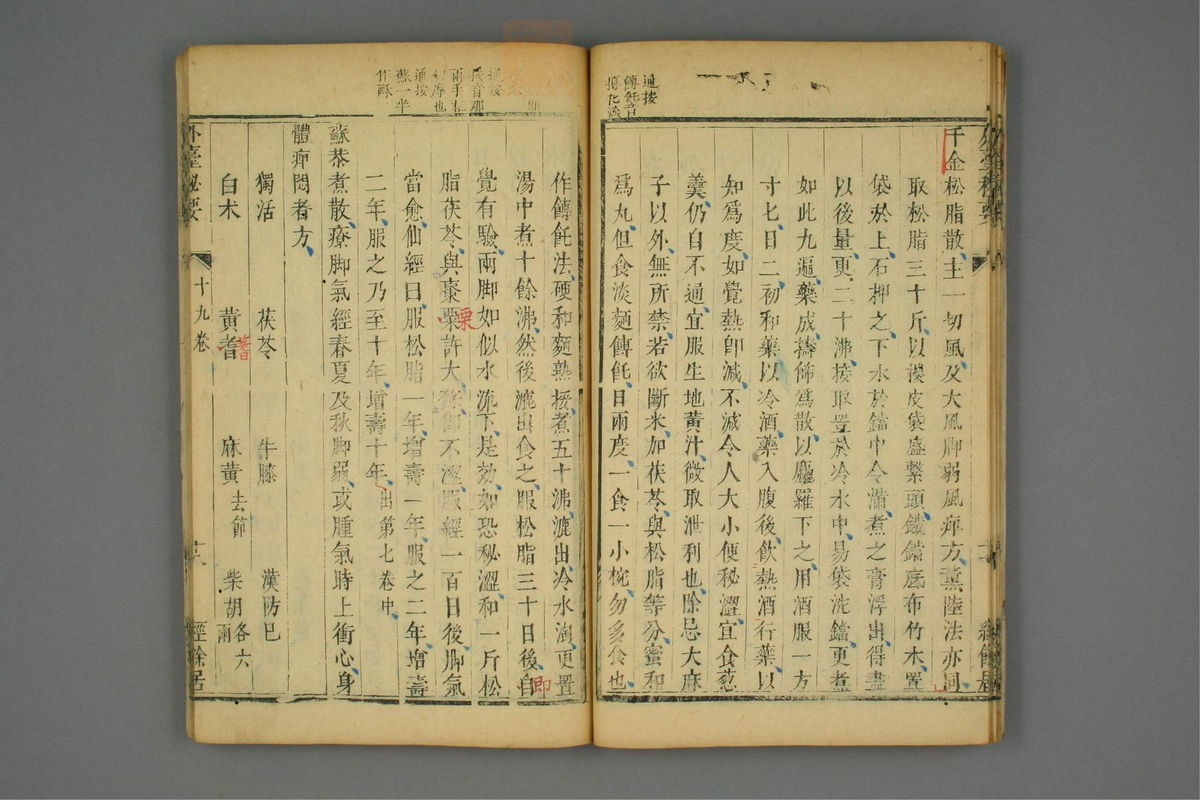 通按
餺飥音
摶託
外臺秘要
千金松脂散主一切風及大風脚弱風痺方薫陸法亦同
取松脂三十斤以椶皮袋盛繫頭鐵鐺底布竹木置
袋於上石押之下水於鐺中令滿煮之膏浮出得盡
以後量更二十沸接取置於冷水中易袋洗鐺更煮
如此九遍藥成擣篩為散以麤羅下之用酒服一方
寸七日二初和藥以冷酒藥入腹後飲熱酒行藥以
知為度如覺熱即減不減令人大小便秘澀宜食葱
羹仍自不通宜服生地黃汁微取泄利也除忌大麻
子以外無所禁若欲斷米加茯苓與松脂等分蜜和
為丸但食淡麵餺飥日兩度一食一小椀勿多食也
通按
挼音那
兩手相
切摩也
通按
蘇一半
作酥
作餺飥法硬和麵熟挼煮五十沸漉出冷水淘更置
湯中煮十餘沸然後漉出食之服松脂三十日後自
即
覺有驗兩脚如似水流下是効如恐秘澀和一斤松
脂茯苓與棗栗許大酥即不澀服經一百日後脚氣
栗
當愈仙經曰服松脂一年增壽一年服之二年增壽
二年服之乃至十年增壽十年出第七卷中
蘇恭煮散療脚氣經春夏及秋脚弱或腫氣時上衝心身
體痹悶者方
獨活 茯苓 牛膝 漢防巳
白木 黃耆 麻黃去節 柴胡各六兩
蓍
外臺秘要 十九卷 經餘居